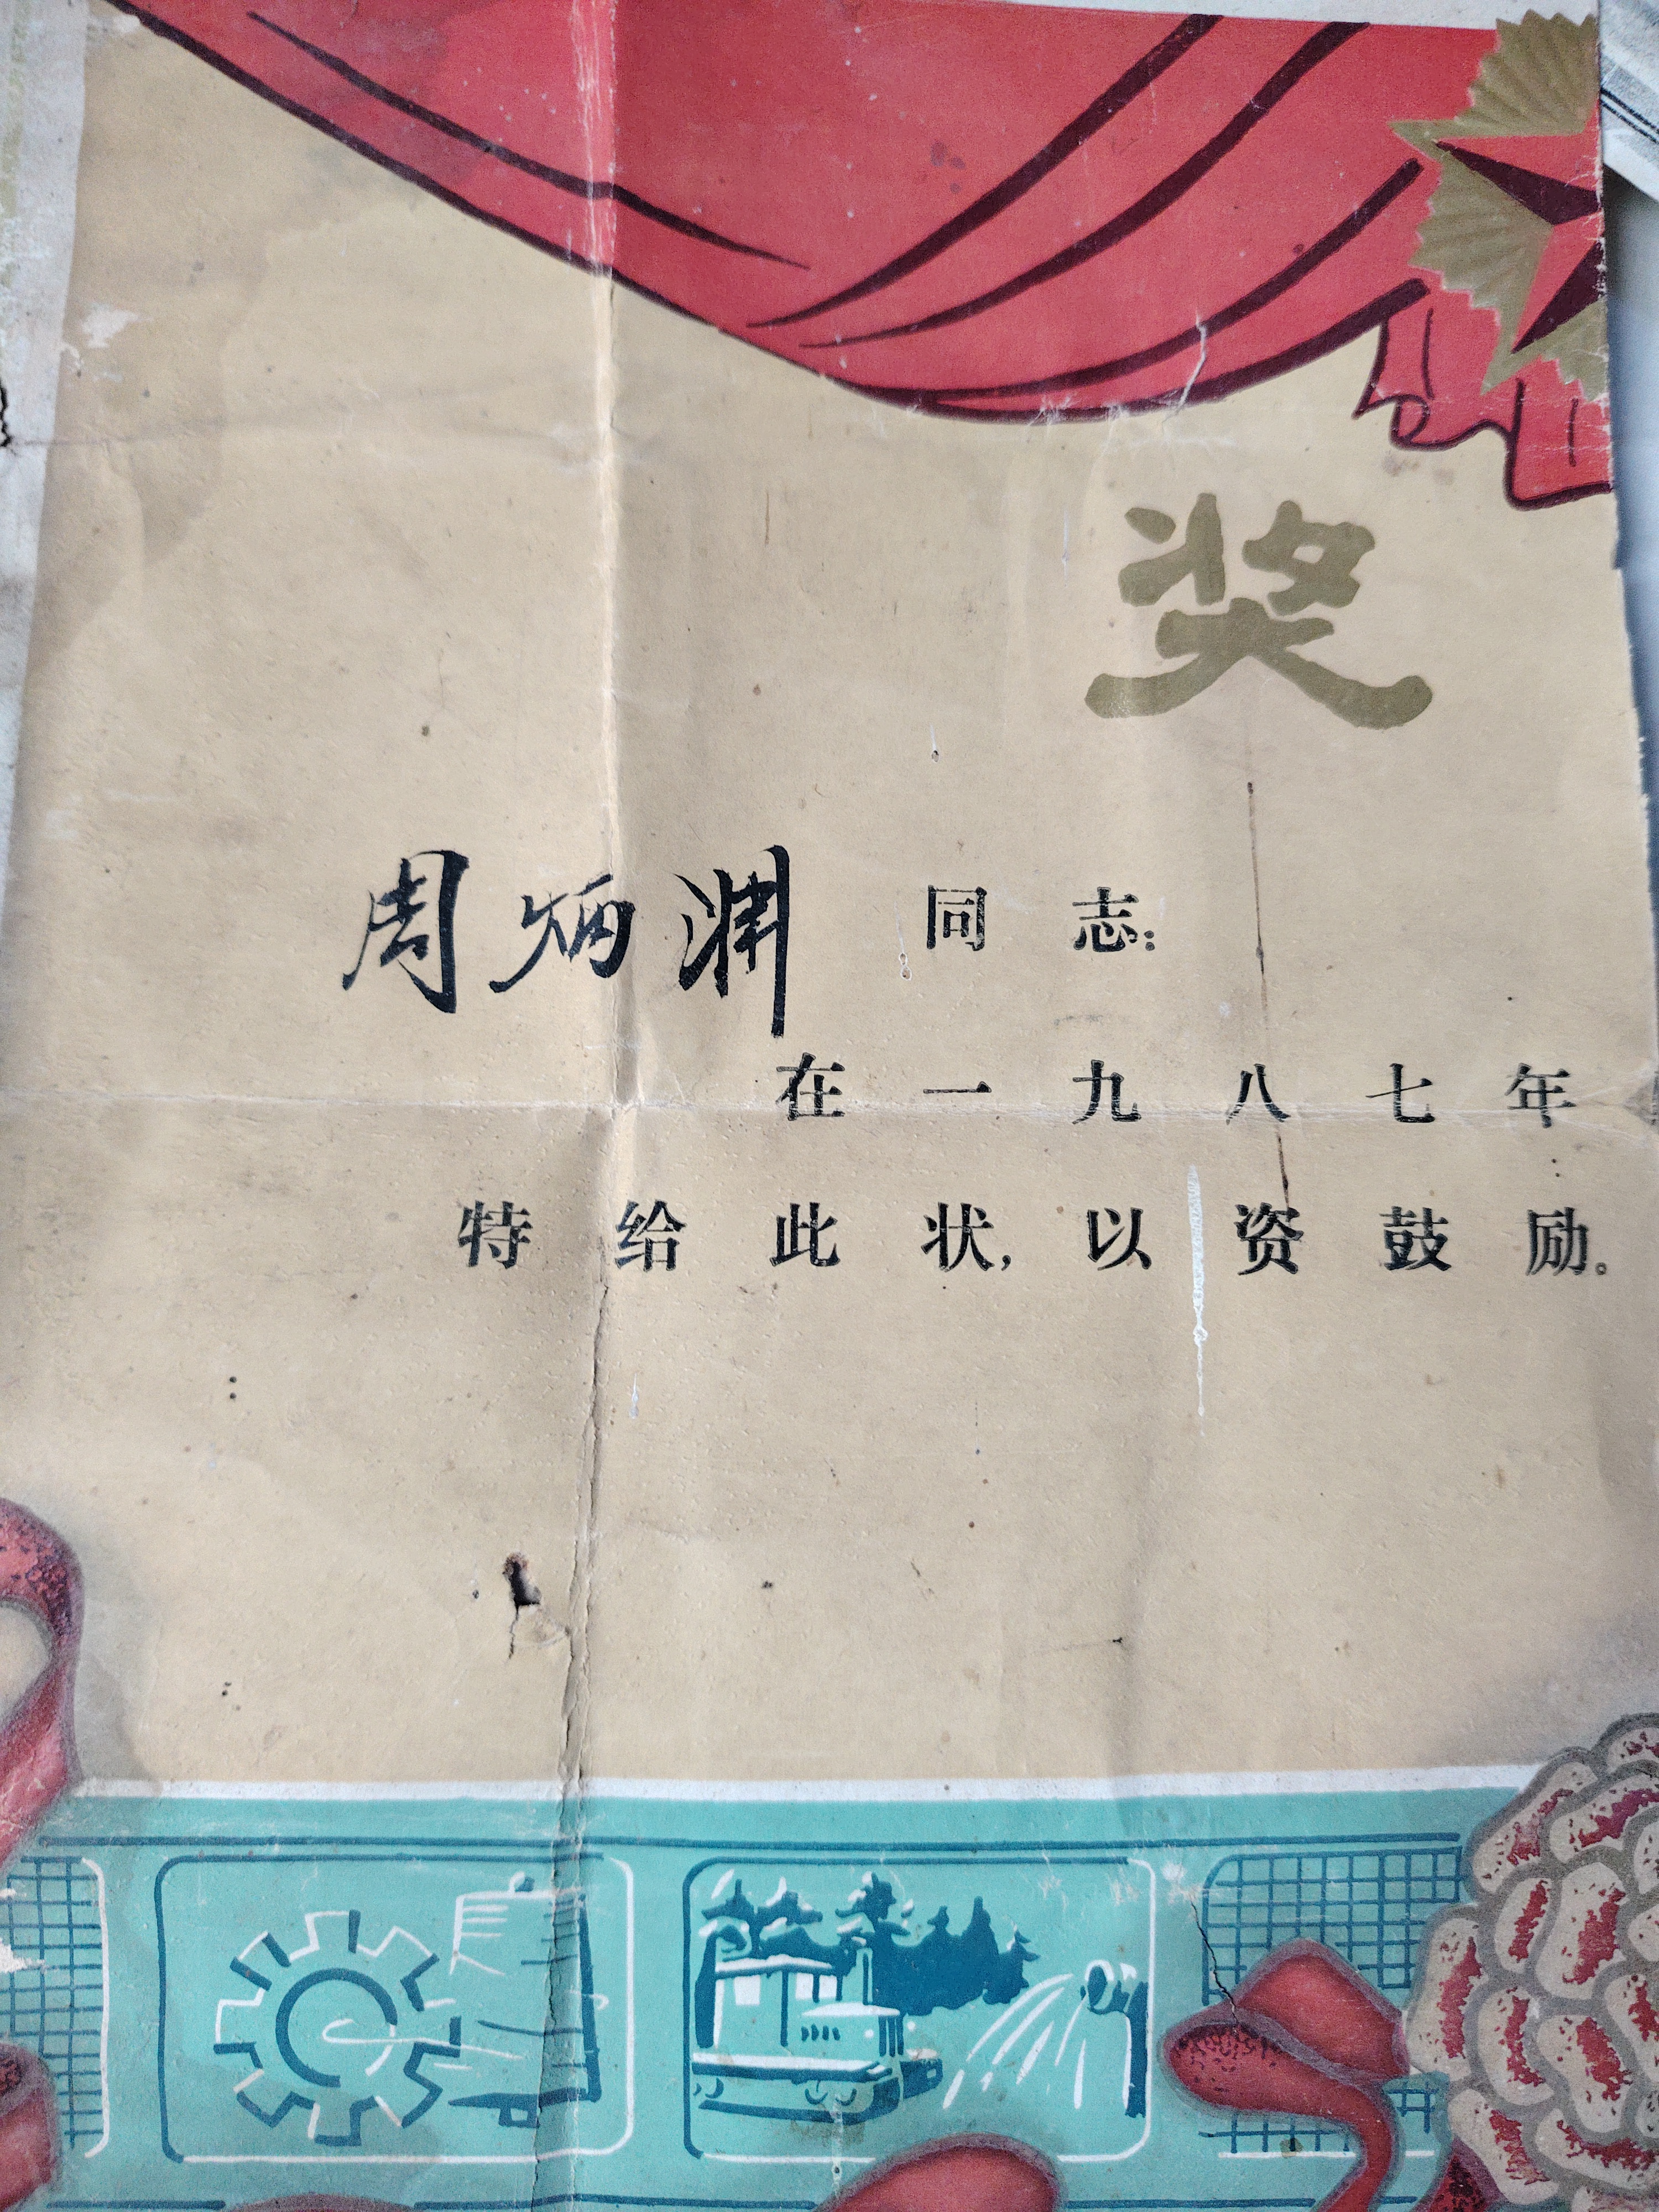 奖
周炳渊 同志:
在一九八七年
特给此状,以资鼓励。